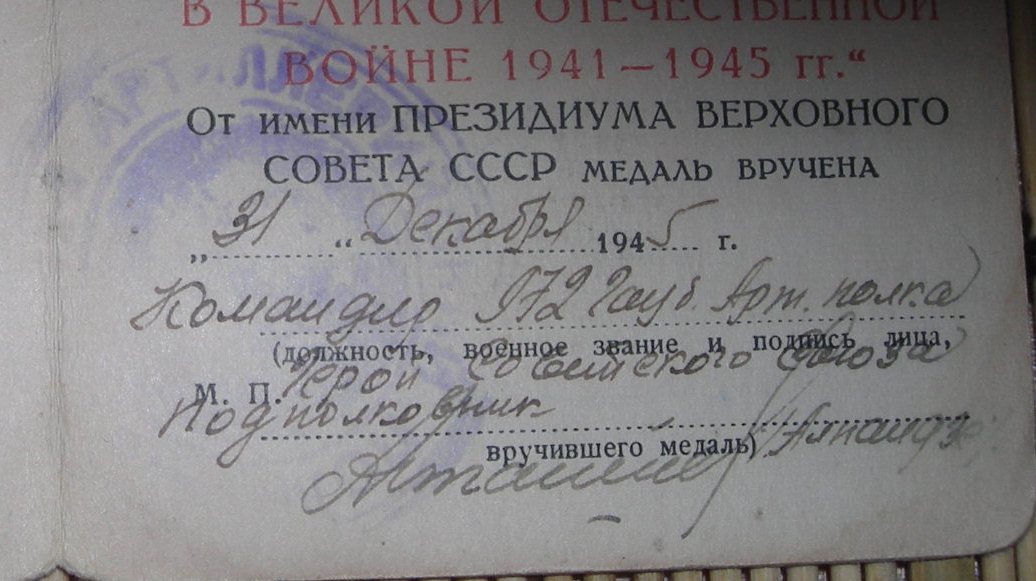 В ВЕЛИКОЙ ОТЕЧЕСТВЕННОЙ
ВОЙНЕ 1941—1945 гг.“
От имени ПРЕЗИДИУМА ВЕРХОВНОГО
СОВЕТА СССР МЕДАЛЬ ВРУЧЕНА
„31“ Декабря 1945 г.
Командир 972 Гауб. Арт. полка
(должность, военное звание и подпись лица,
Герой Советского Союза
М. П.
Подполковник
вручившего медаль)